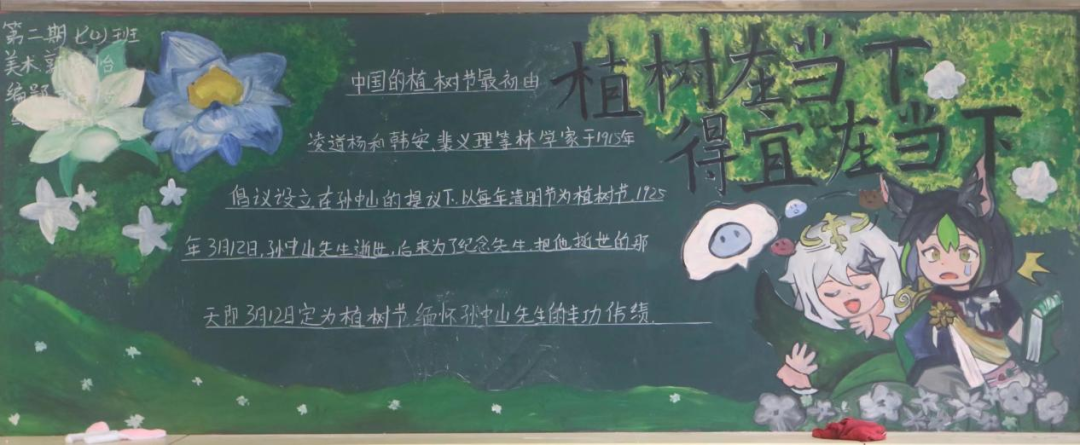 第二期七(4)班
美术 郭 怡
编
植树在当下
得宜在当下
中国的植树节最初由
凌道杨和韩安、裴义理等林学家于1915年
倡议设立,在孙中山的提议下,以每年清明节为植树节.1925
年3月12日,孙中山先生逝世,后来为了纪念先生,把他逝世的那
天即3月12日定为植树节,缅怀孙中山先生的丰功伟绩.